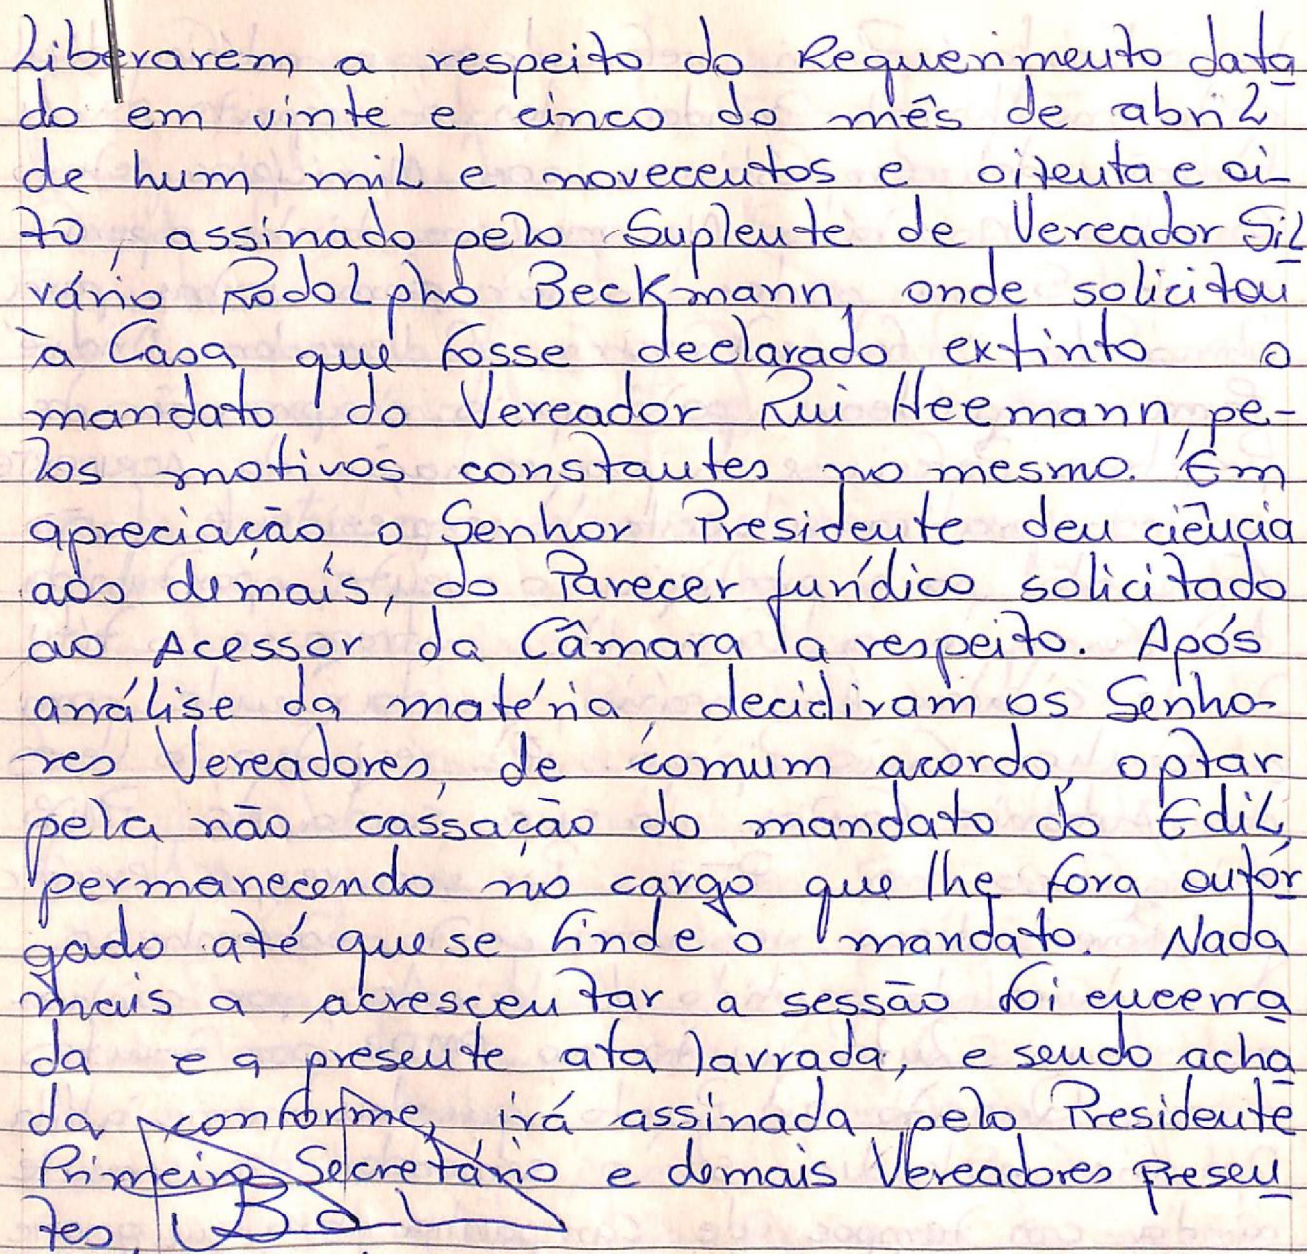 liberarem a respeito do Requerimento data
do em vinte e cinco do mês de abril
de hum mil e novecentos e oitenta e oi-
to, assinado pelo Suplente de Vereador Sil
vário Rodolpho Beckmann, onde solicitou
à Casa que fosse declarado extinto o
mandato do Vereador Rui Heemann, pe-
los motivos constantes no mesmo. Em
apreciação o Senhor Presidente deu ciência
aos demais, do Parecer Jurídico solicitado
ao Acessor da Câmara a respeito. Após
análise da matéria, decidiram os Senho-
res Vereadores, de comum acordo, optar
pela não cassação do mandato do Edil,
permanecendo no cargo que lhe fora outor
gado até que se finde o mandato. Nada
mais a acrescentar a sessão foi encerra
da e a presente ata lavrada, e sendo acha
da conforme, irá assinada pelo Presidente
Primeiro Secretário e demais Vereadores presen
tes.